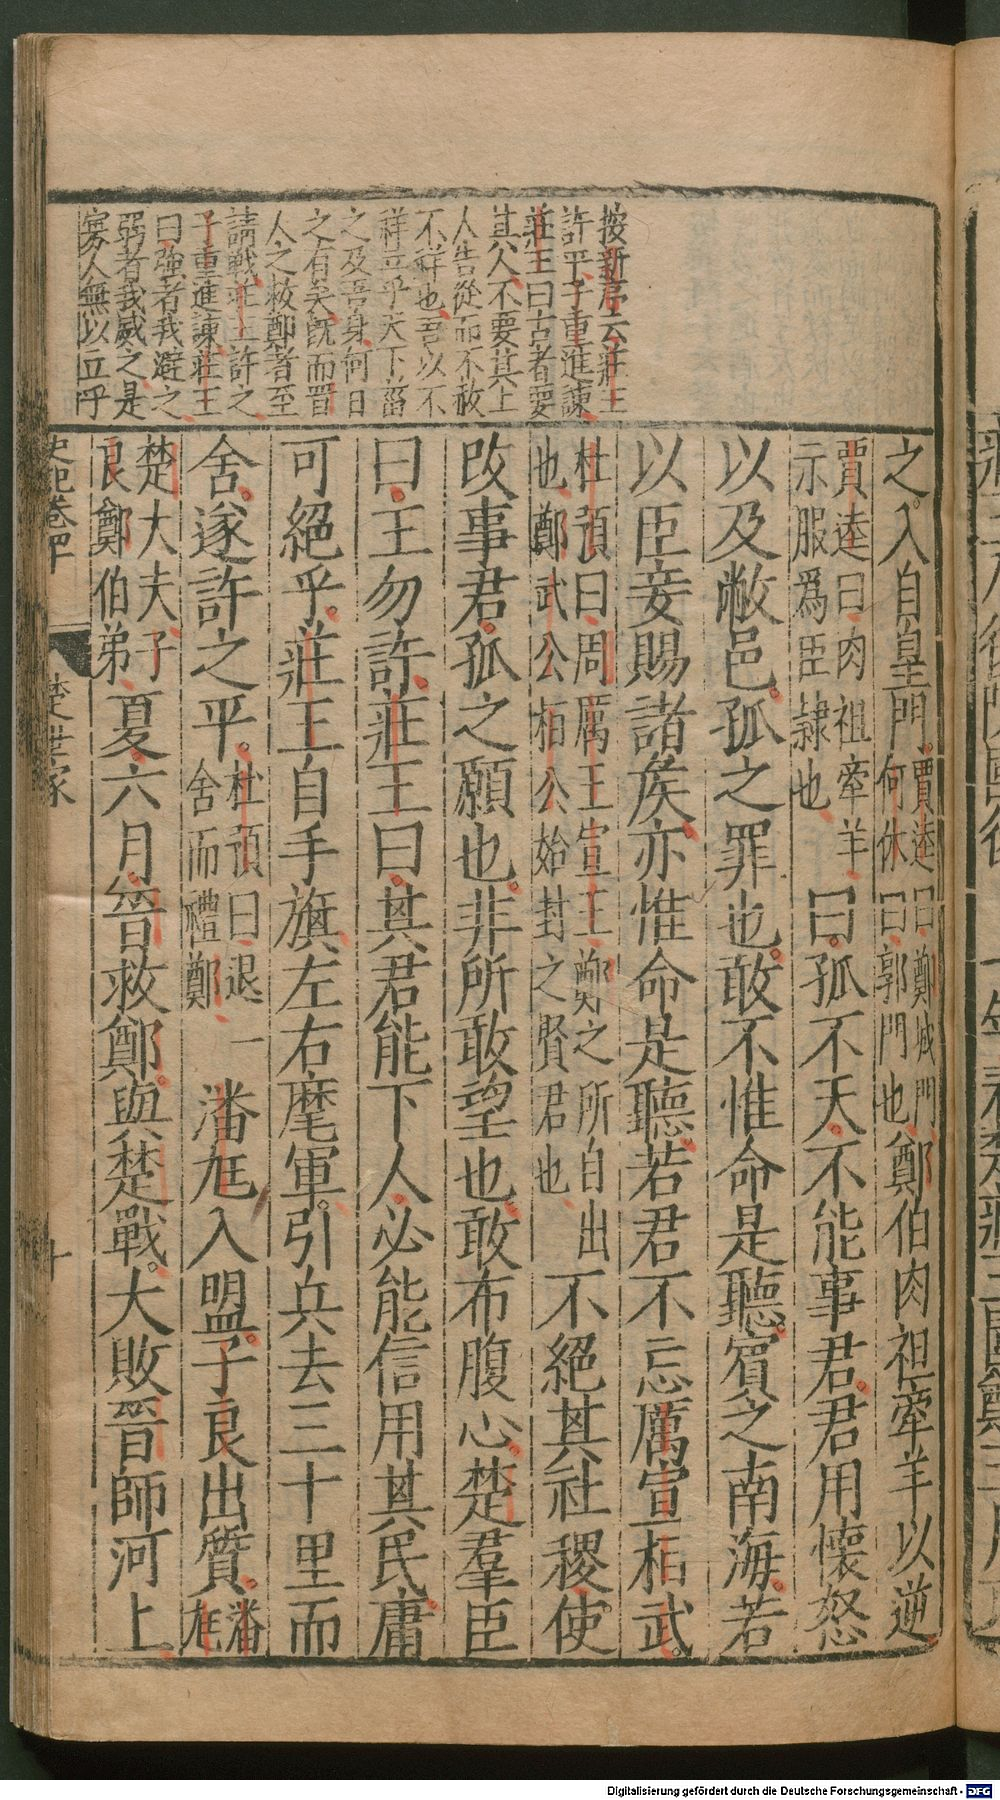 按新序云莊王
許平子重進諫
莊王曰古者要
其人不要其土
人告從而不赦
不祥也吾以不
祥立乎天下菑
之及吾身何日
之有矣既而晋
人之救鄭者至
請戰莊王許之
子重進諫莊王
曰強者我避之
弱者我威之是
寡人無以立乎
之入自皇門
賈逵曰鄭城門
何休曰郭門也
鄭伯肉袒牽羊以逆
賈逵曰肉袒牽羊
示服爲臣隷也
曰孤不天不能事君君用懐怒
以及敝邑孤之罪也敢不惟命是聽賔之南海若
以臣妾賜諸矦亦惟命是聽若君不忘厲宣桓武
杜預曰周厲王宣王鄭之所自出
也鄭武公桓公始封之賢君也
不絕其社稷使
改事君孤之願也非所敢望也敢布腹心楚羣臣
曰王勿許莊王曰其君能下人必能信用其民庸
可絕乎莊王自手旗左右麾軍引兵去三十里而
舍遂許之平
杜預曰退一
舍而禮鄭
潘尫入盟子良出質
潘尫
楚大夫子
良鄭伯弟
夏六月晉救鄭與楚戰大敗晉師河上
史記卷四十
楚世家
十
Digitalisierung gefördert durch die Deutsche Forschungsgemeinschaft - DFG